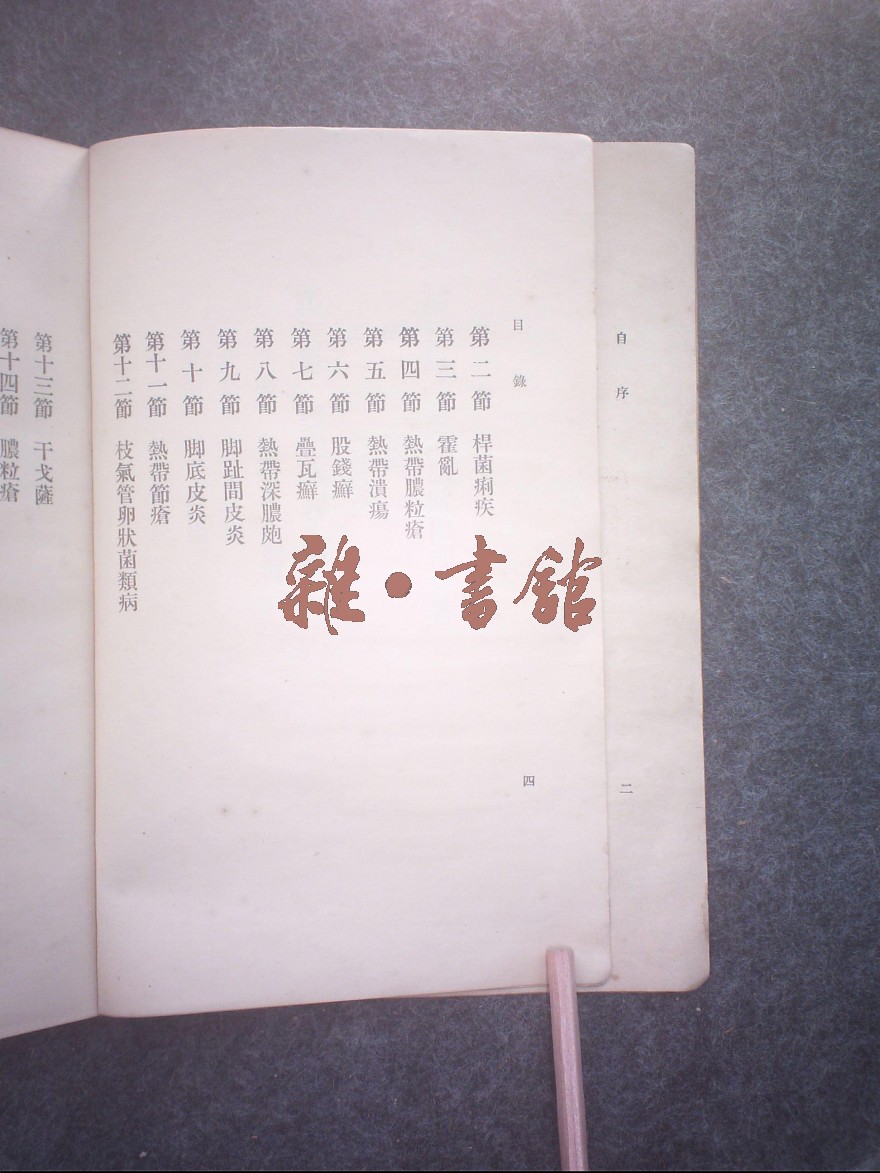 自序
二
目錄
四
第二節 桿菌痢疾
第三節 霍亂
第四節 熱帶膿粒瘡
第五節 熱帶潰瘍
第六節 股錢癬
第七節 疊瓦癬
第八節 熱帶深膿皰
第九節 脚趾間皮炎
第十節 脚底皮炎
第十一節 熱帶節瘡
第十二節 枝氣管卵狀菌類病
第十三節 干戈薩
第十四節 膿粒瘡
雜・書館